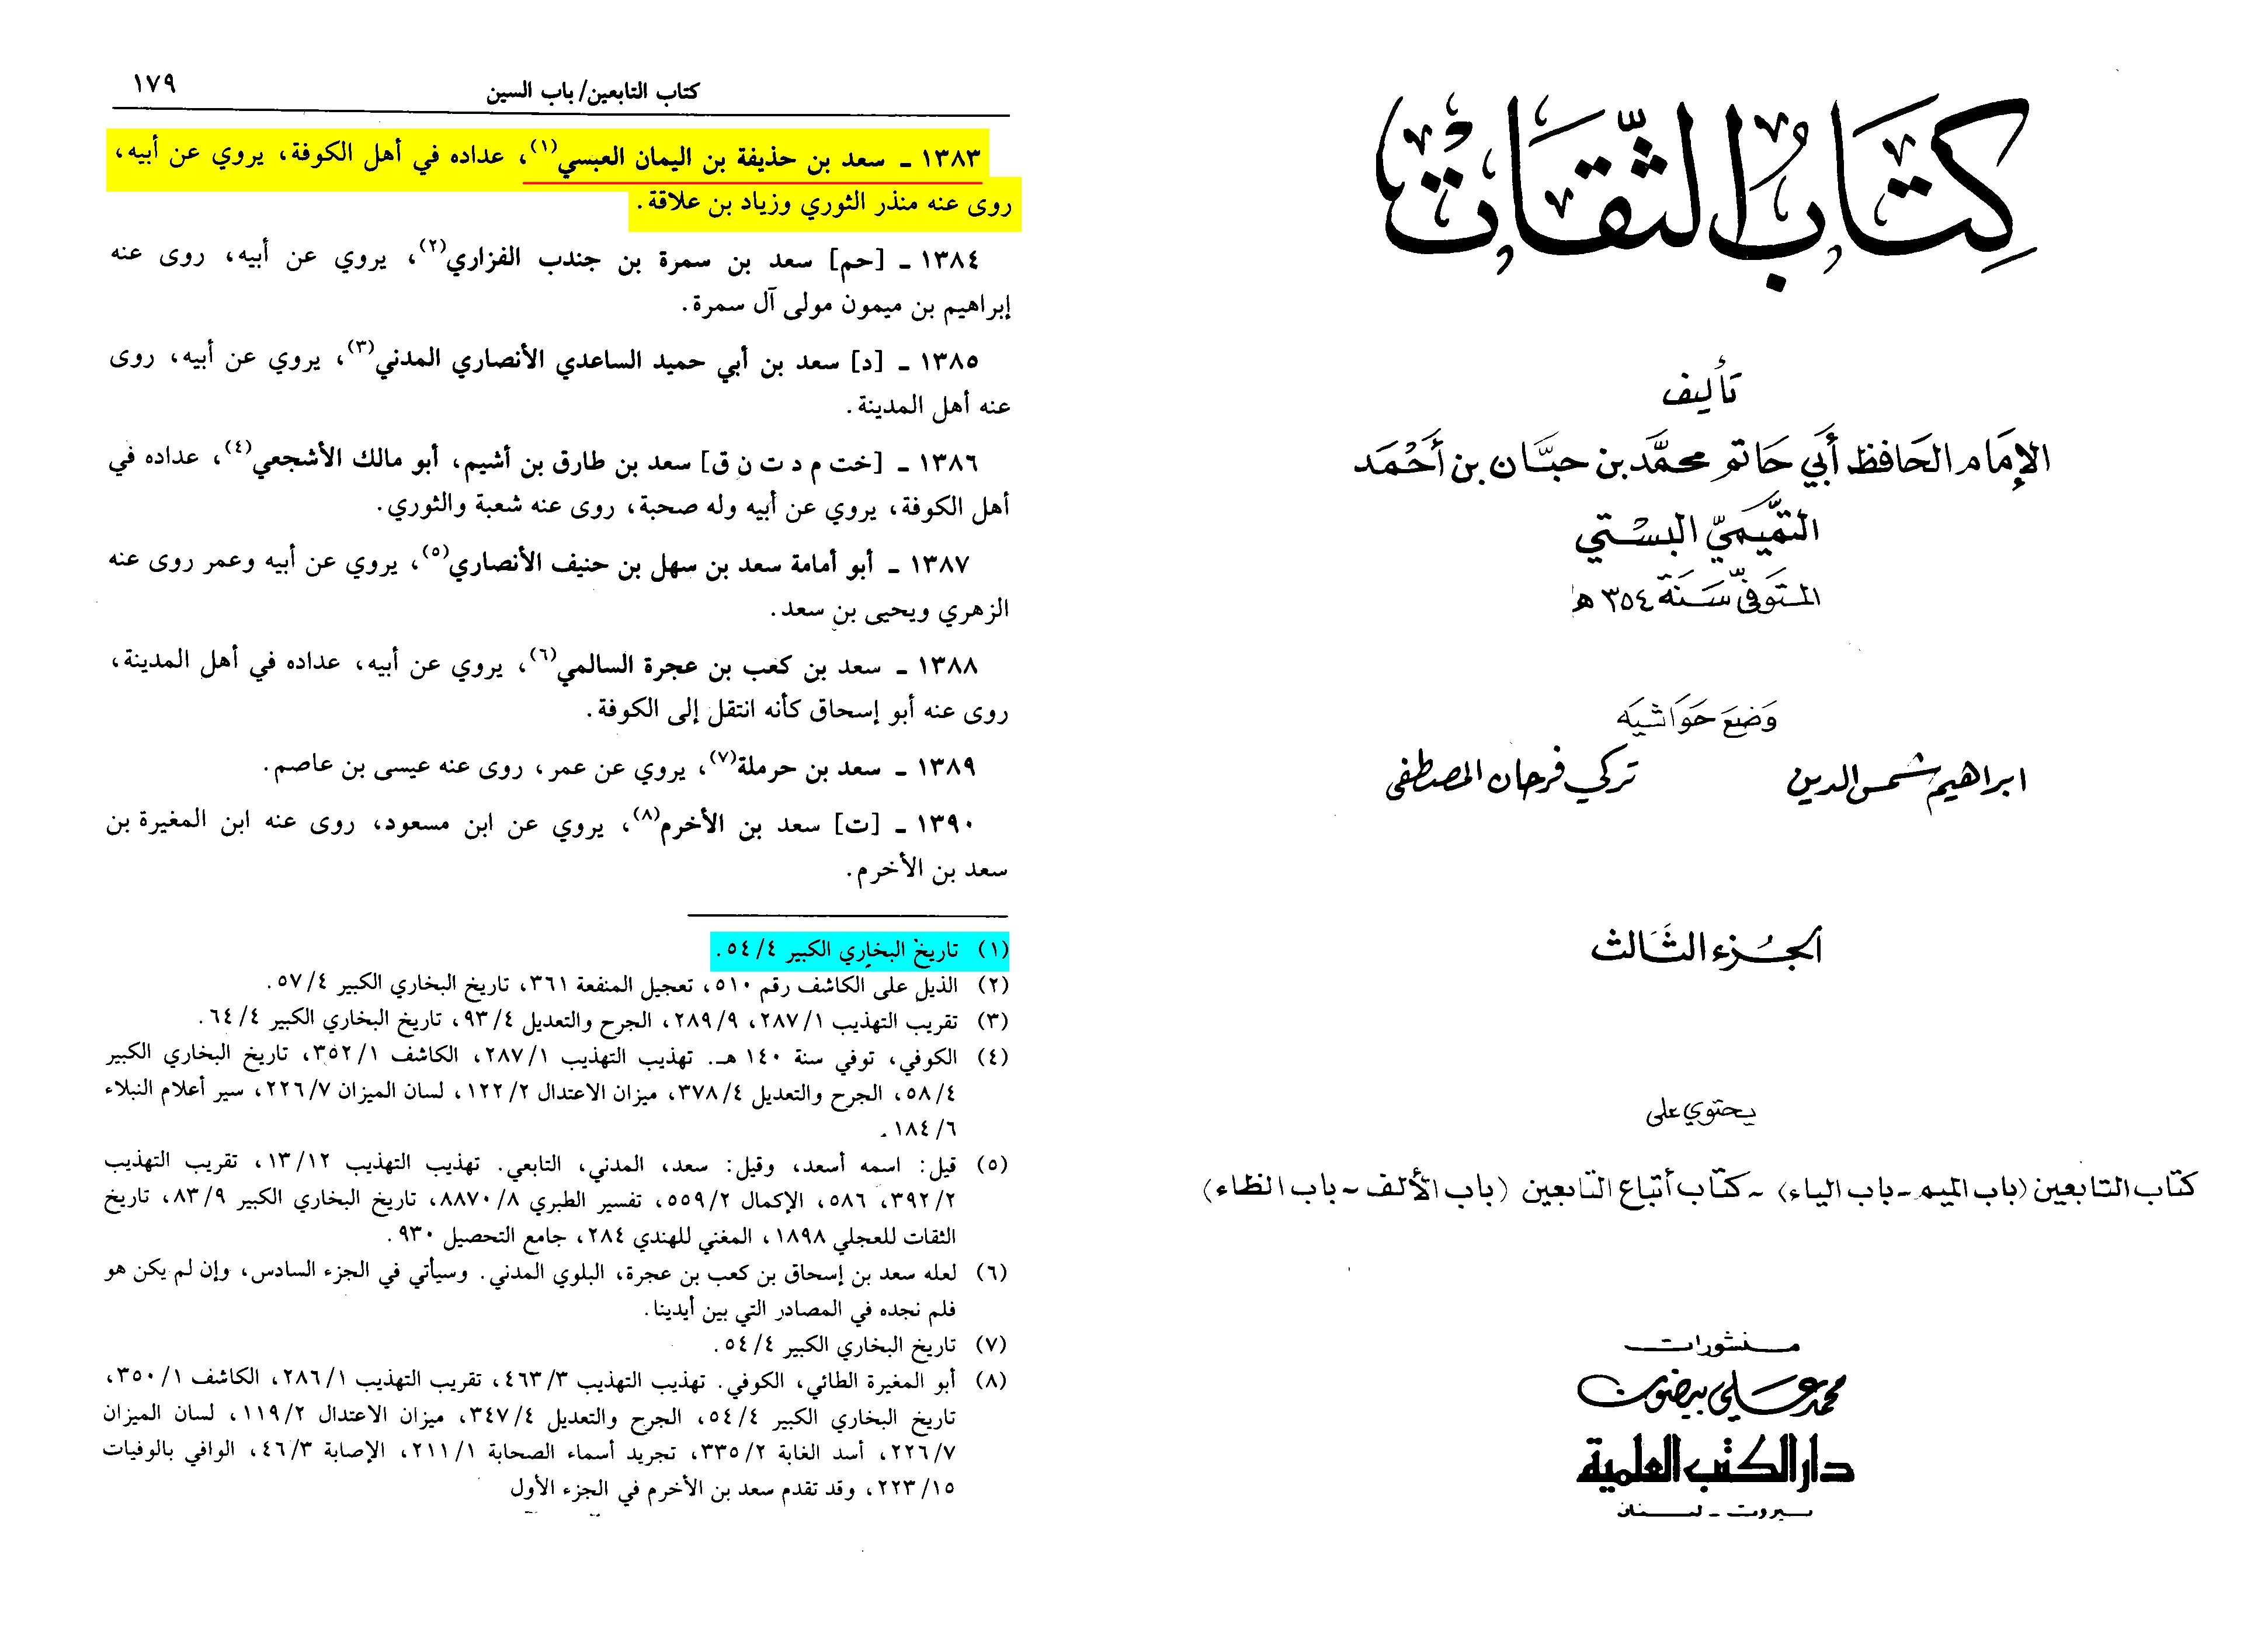 كِتَابُ الثِّقَات
تأليف
الإمَام الحَافِظ أَبي حَاتم محمَّد بن حبَّان بن أَحْمَد
التَّميمَيّ البسْتي
المتَوفّى سَنَة ٣٥٤ هـ
وَضعَ حَوَاشيَه
ابراهيم شمس الدين تركي فرحان المصطفى
الجزء الثَالث
يحتوي على
كتاب التابعين (باب الميم - باب الياء) - كتاب أتباع التابعين (باب الألف - باب الظاء)
منشورات
محمد علي بيضون
دار الكتب العلمية
بيروت - لبنان
كتاب التابعين/ باب السين ١٧٩
١٣٨٣ - سعد بن حذيفة بن اليمان العبسي(١)، عداده في أهل الكوفة، يروي عن أبيه،
روى عنه منذر الثوري وزياد بن علاقة.
١٣٨٤ - [حم] سعد بن سمرة بن جندب الفزاري(٢)، يروي عن أبيه، روى عنه
إبراهيم بن ميمون مولى آل سمرة.
١٣٨٥ - [د] سعد بن أبي حميد الساعدي الأنصاري المدني(٣)، يروي عن أبيه، روى
عنه أهل المدينة.
١٣٨٦ - [خت م د ت ن ق] سعد بن طارق بن أشيم، أبو مالك الأشجعي(٤)، عداده في
أهل الكوفة، يروي عن أبيه وله صحبة، روى عنه شعبة والثوري.
١٣٨٧ - أبو أمامة سعد بن سهل بن حنيف الأنصاري(٥)، يروي عن أبيه وعمر روى عنه
الزهري ويحيى بن سعد.
١٣٨٨ - سعد بن كعب بن عجرة السالمي(٦)، يروي عن أبيه، عداده في أهل المدينة،
روى عنه أبو إسحاق كأنه انتقل إلى الكوفة.
١٣٨٩ - سعد بن حرملة(٧)، يروي عن عمر، روى عنه عيسى بن عاصم.
١٣٩٠ - [ت] سعد بن الأخرم(٨)، يروي عن ابن مسعود، روى عنه ابن المغيرة بن
سعد بن الأخرم.
(١) تاريخ البخاري الكبير ٤/ ٥٤.
(٢) الذيل على الكاشف رقم ٥١٠، تعجيل المنفعة ٣٦١، تاريخ البخاري الكبير ٤/ ٥٧.
(٣) تقريب التهذيب ١/ ٢٨٧، ٩/ ٢٨٩، الجرح والتعديل ٤/ ٩٣، تاريخ البخاري الكبير ٤/ ٦٤.
(٤) الكوفي، توفي سنة ١٤٠ هـ. تهذيب التهذيب ١/ ٢٨٧، الكاشف ١/ ٣٥٢، تاريخ البخاري الكبير
٤/ ٥٨، الجرح والتعديل ٤/ ٣٧٨، ميزان الاعتدال ٢/ ١٢٢، لسان الميزان ٧/ ٢٢٦، سير أعلام النبلاء
٦/ ١٨٤.
(٥) قيل: اسمه أسعد، وقيل: سعد، المدني، التابعي. تهذيب التهذيب ١٢/ ١٣، تقريب التهذيب
٢/ ٣٩٢، ٥٨٦، الإكمال ٢/ ٥٥٩، تفسير الطبري ٨/ ٨٨٧٠، تاريخ البخاري الكبير ٩/ ٨٣، تاريخ
الثقات للعجلي ١٨٩٨، المغني للهندي ٢٨٤، جامع التحصيل ٩٣٠.
(٦) لعله سعد بن إسحاق بن كعب بن عجرة، البلوي المدني. وسيأتي في الجزء السادس، وإن لم يكن هو
فلم نجده في المصادر التي بين أيدينا.
(٧) تاريخ البخاري الكبير ٤/ ٥٤.
(٨) أبو المغيرة الطائي، الكوفي. تهذيب التهذيب ٣/ ٤٦٣، تقريب التهذيب ١/ ٢٨٦، الكاشف ١/ ٣٥٠،
تاريخ البخاري الكبير ٤/ ٥٤، الجرح والتعديل ٤/ ٣٤٧، ميزان الاعتدال ٢/ ١١٩، لسان الميزان
٧/ ٢٢٦، أسد الغابة ٢/ ٣٣٥، تجريد أسماء الصحابة ١/ ٢١١، الإصابة ٣/ ٤٦، الوافي بالوفيات
١٥/ ٢٢٣، وقد تقدم سعد بن الأخرم في الجزء الأول